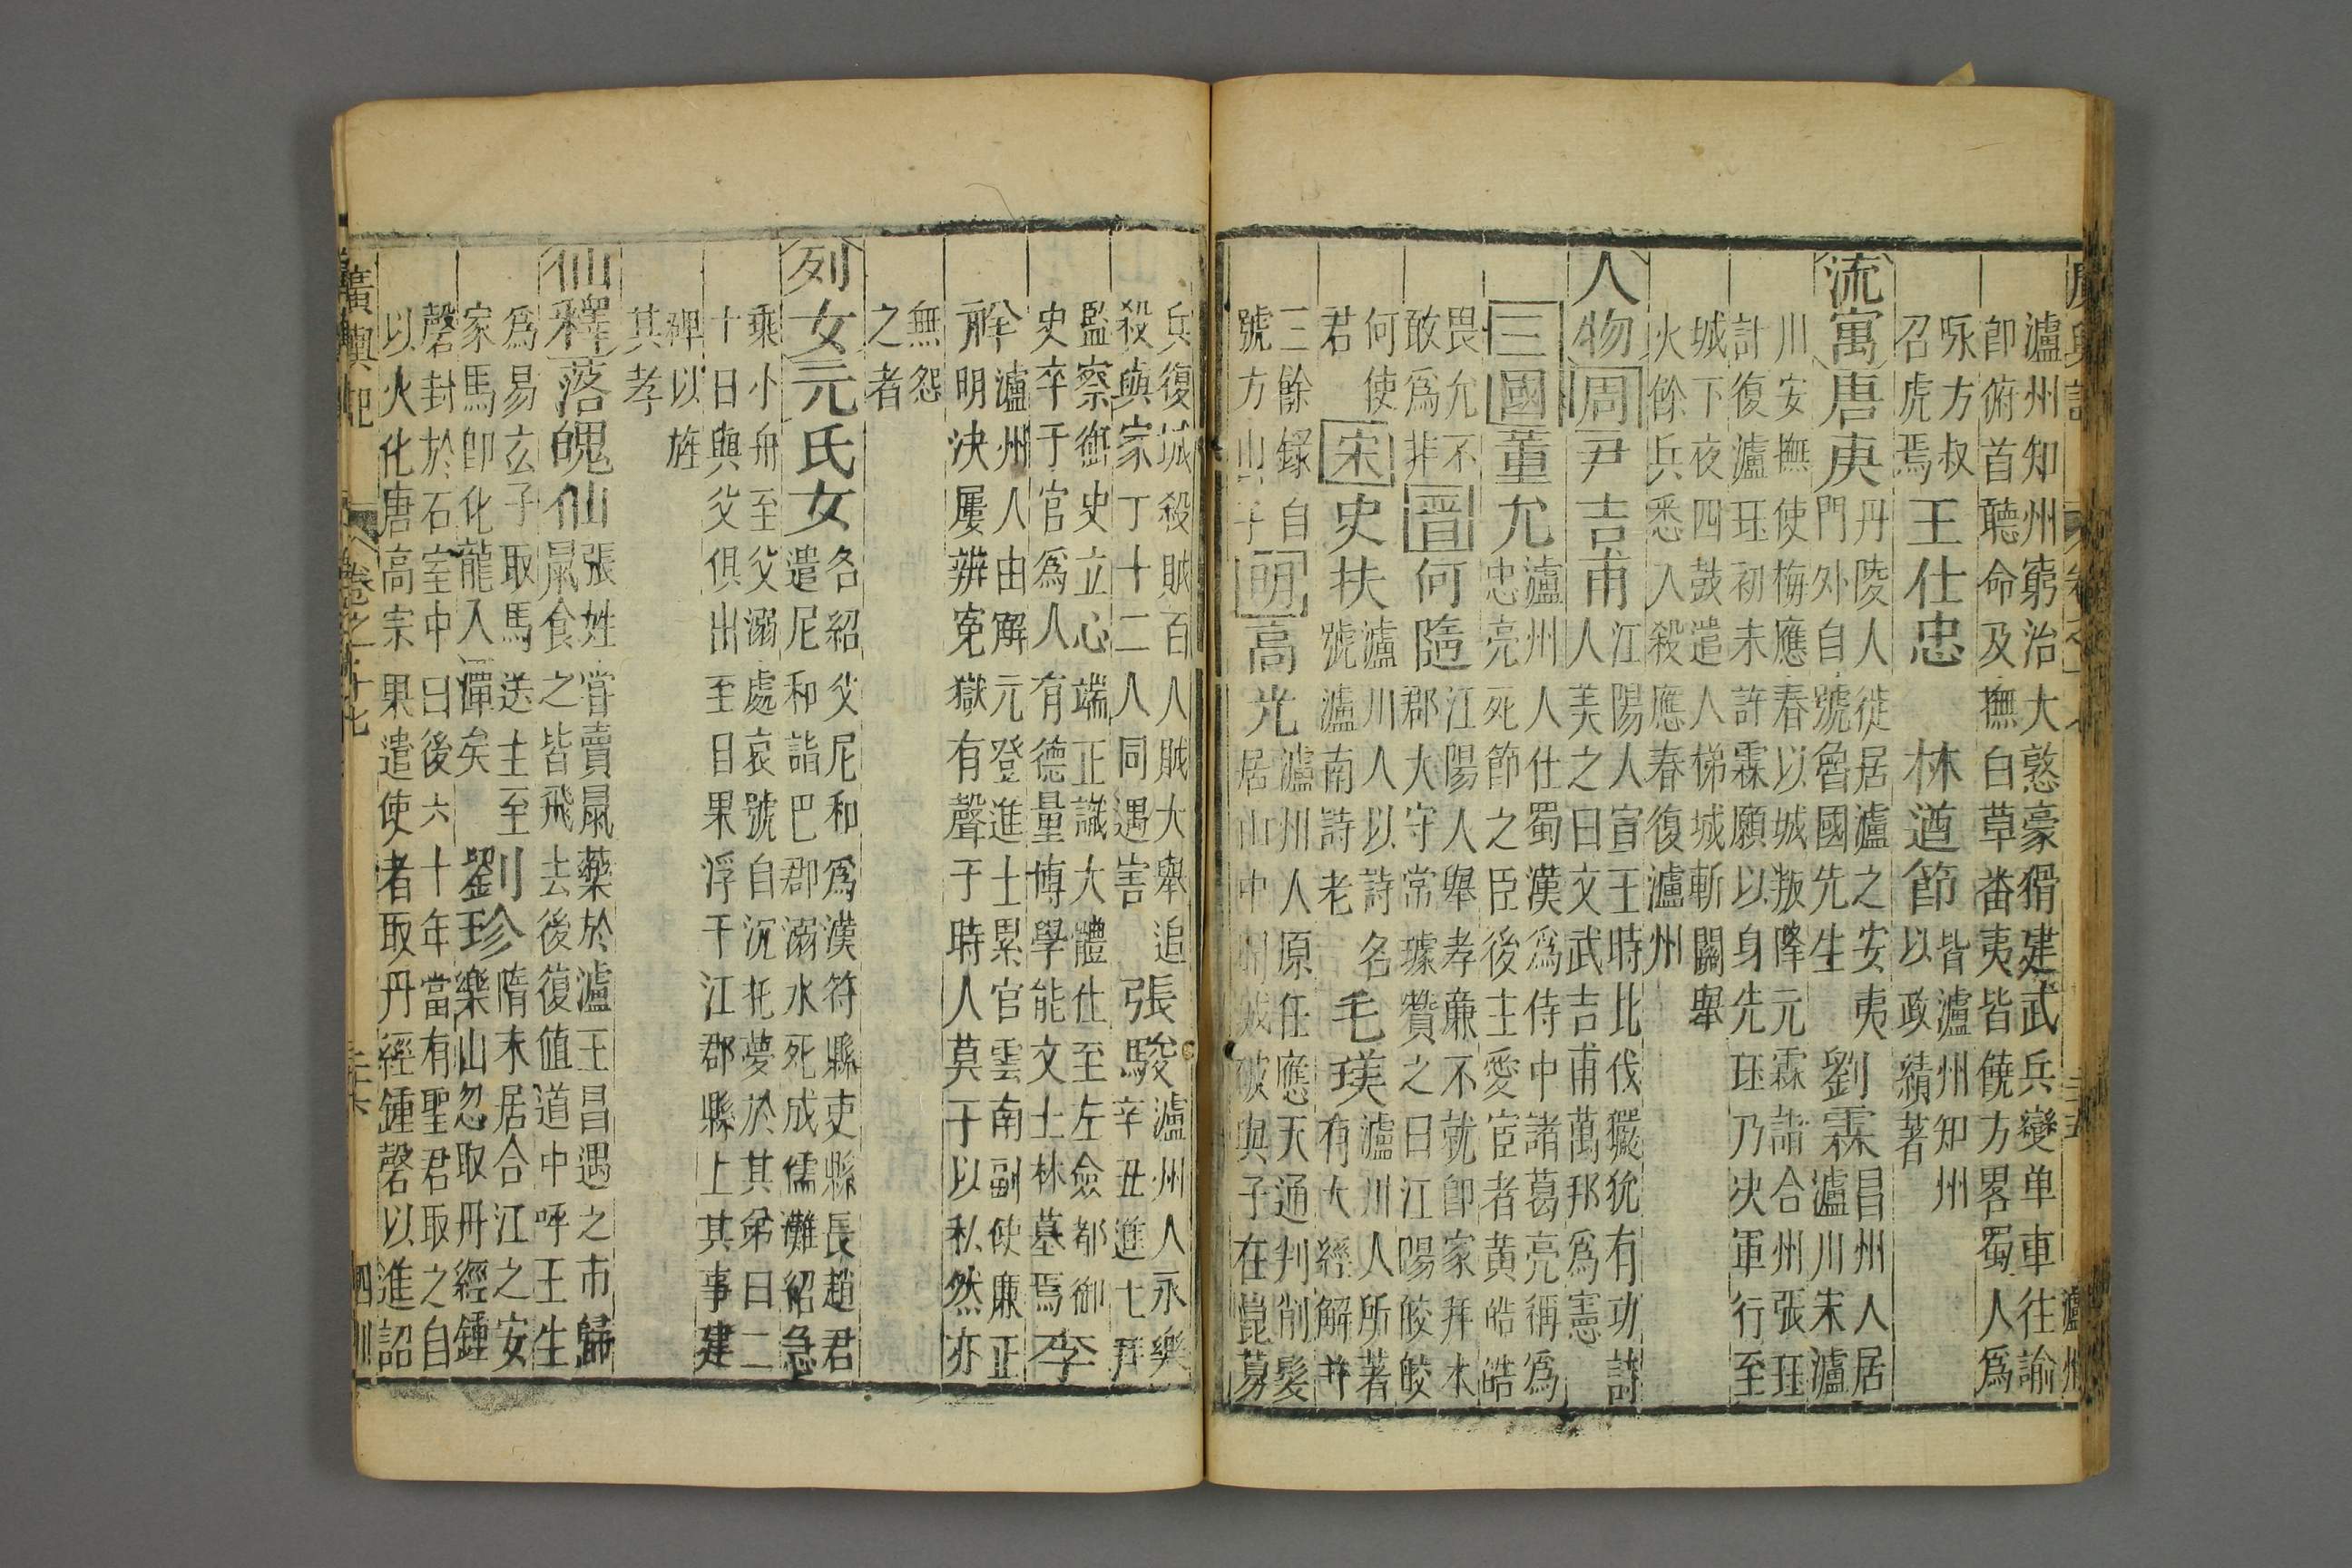 瀘州知州窮治大憝豪猾建武兵變单車往諭
即俯首聽命及撫白草畨夷皆饒方畧蜀人爲
咏方叔
召虎焉
王仕忠
林遒節
皆瀘州知州
以政績著
流寓
唐庚
丹陵人徙居瀘之安夷
門外自號魯國先生
劉霖
昌州人居
瀘川末瀘
川安撫使梅應春以城叛降元霖諧合州張珏
計復瀘珏初未許霖願以身先珏乃决軍行至
城下夜四鼓遣人梯城斬關舉
火餘兵悉入殺應春復瀘州
人物
周
尹吉甫
江陽人宣王時北伐玁狁有功詩
人美之曰文武吉甫萬邦爲憲
三國
董允
瀘州人仕蜀漢爲侍中諸葛亮稱爲
忠亮死節之臣後主愛宦者黄皓皓
畏允不
敢爲非
晋
何隨
江陽人舉孝廉不就即家拜本
郡大守常璩贊之曰江陽皎皎
何使
君
宋
史扶
瀘川人以詩名
號瀘南詩老
毛璞
瀘川人所著
有六經解并
三餘録自
號方山子
明
高光
瀘州人原任應天通判削髮
居山中州城破與子在崑募
兵復城殺賊百人賊大舉追
殺與家丁十二人同遇害
張駿
瀘州人永樂
辛丑進七拜
監察御史立心端正識大體仕至左僉都御
史卒于官爲人有德量博學能文士林墓焉
李
觧
瀘州人由解元登進士累官雲南副使廉正
明决屢辨寃獄有聲于時人莫干以私然亦
無怨
之者
列女
元氏女
各紹父尼和爲漢符縣吏縣長趙君
遣尼和詣巴郡溺水死成儒灘紹急
乘小舟至父溺處哀號自沉托夢於其弟曰二
十日與父俱出至日果浮于江郡縣上其事建
碑以旌
其孝
仙釋
落魄仙
張姓嘗賣鼠藥於瀘王昌遇之市歸
鼠食之皆飛去後復值道中呼王生
爲易玄子取馬送主至
家馬即化龍入潭矣
劉珍
隋末居合江之安
樂山忽取丹經鍾
磬封於石室中曰後六十年當有聖君取之自
以火化唐高宗果遣使者取丹經鍾磬以進詔
廣輿記
卷之十七
二十六
四川